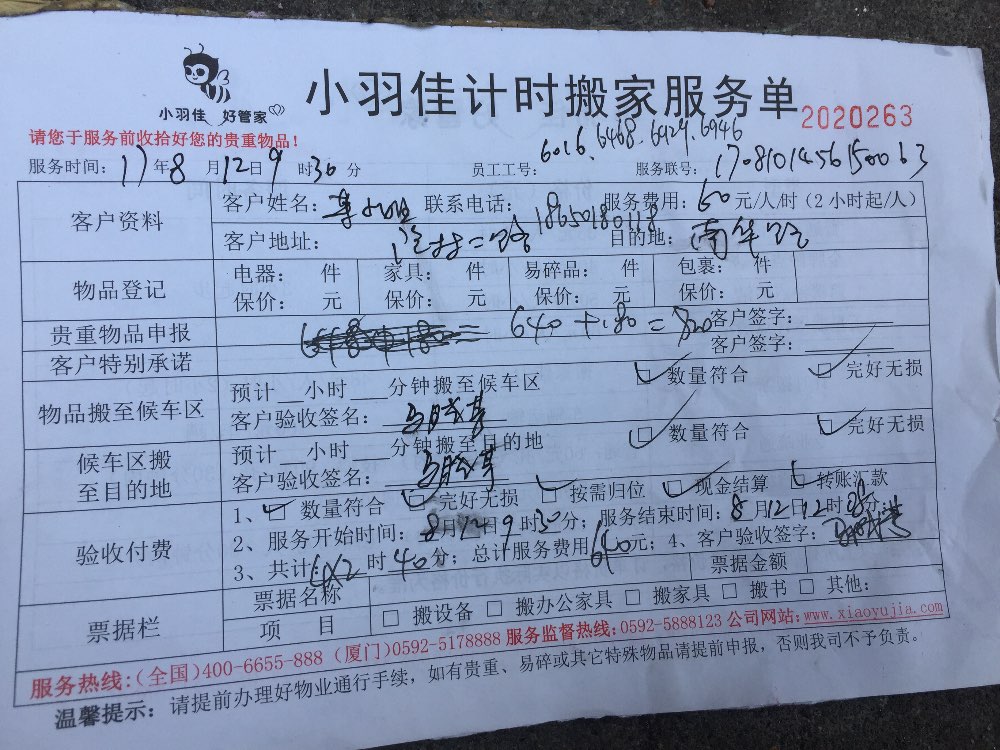 小羽佳 好管家
小羽佳计时搬家服务单
2020263
请您于服务前收拾好您的贵重物品！
6016、6468、6429、6946
服务时间：17年8月12日9时30分 员工工号： 服务联号：1708101456150063
客户资料 客户姓名： 联系电话：18650180118 服务费用：60元/人/时（2小时起/人）
客户地址： 目的地：南华路
物品登记 电器： 件 家具： 件 易碎品： 件 包裹： 件
保价： 元 保价： 元 保价： 元 保价： 元
贵重物品申报 640+180=820 客户签字：
客户特别承诺 客户签字：
物品搬至候车区 预计__小时___分钟搬至候车区 □数量符合 □完好无损
客户验收签名：
候车区搬至目的地 预计__小时___分钟搬至目的地 □数量符合 □完好无损
客户验收签名：
验收付费 1、□数量符合 □完好无损 □按需归位 □现金结算 □转账汇款
2、服务开始时间：8月12日9时30分；服务结束时间：8月12日12时分；
3、共计：4X2时40分；总计服务费用640元；4、客户验收签字：
票据栏 票据名称 票据金额
项 目 □搬设备 □搬办公家具 □搬家具 □搬书 □其他：
服务热线：（全国）400-6655-888（厦门）0592-5178888 服务监督热线：0592-5888123 公司网站：www.xiaoyujia.com
温馨提示：请提前办理好物业通行手续，如有贵重、易碎或其它特殊物品请提前申报，否则我司不予负责。